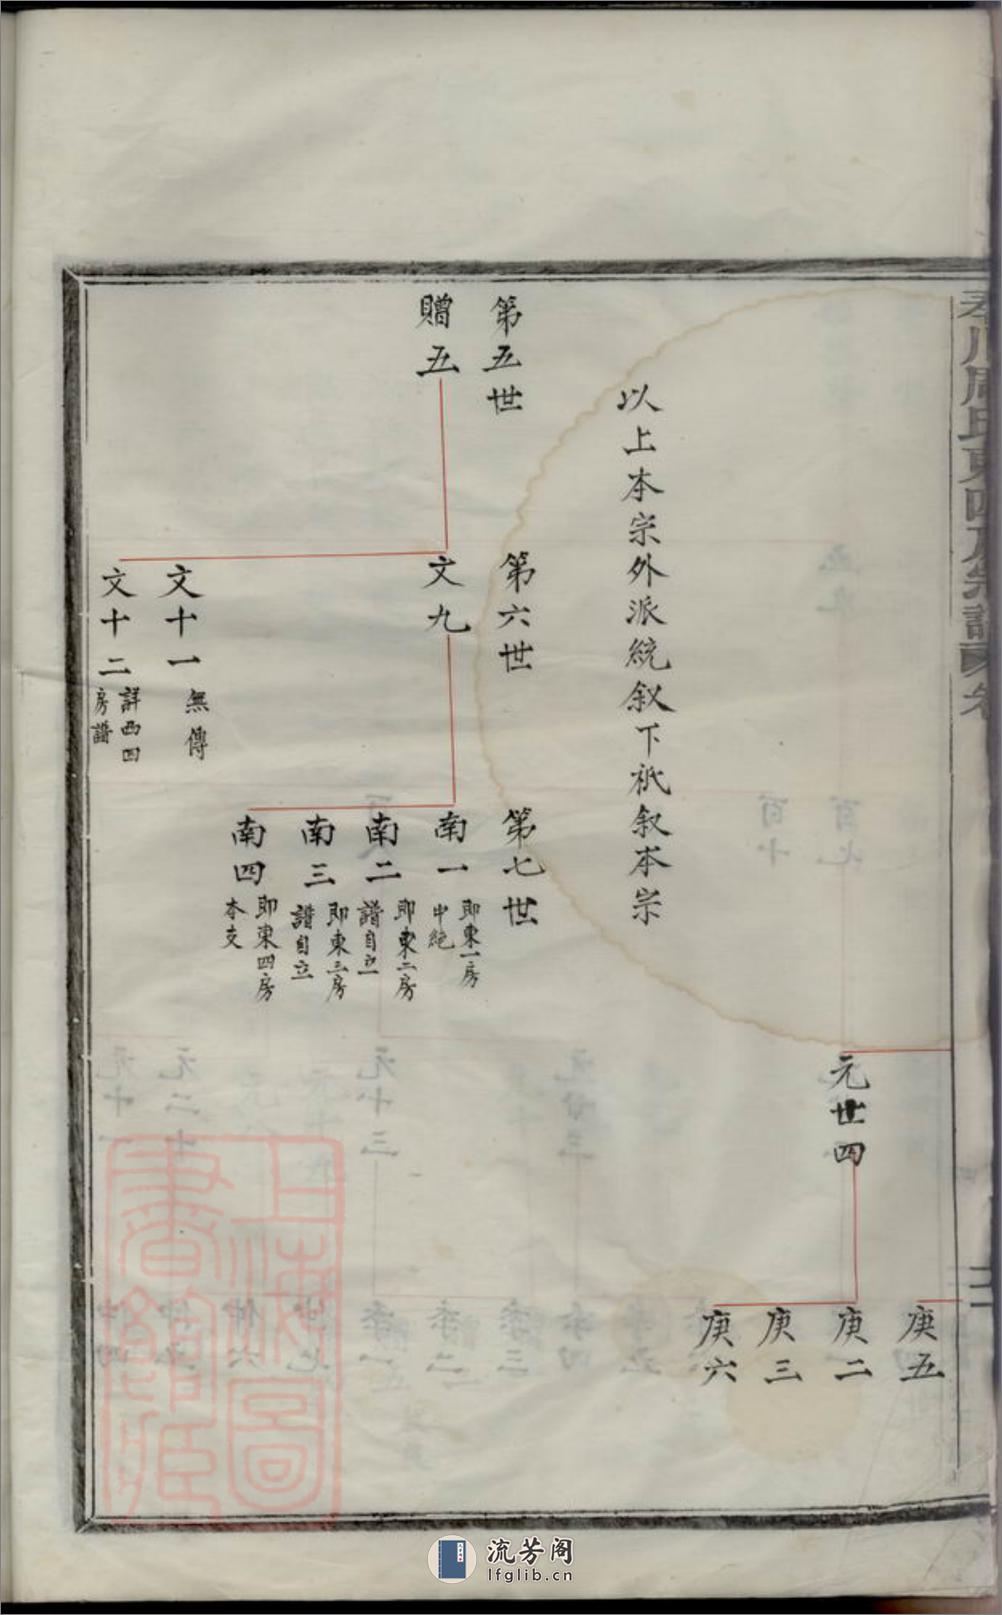 周氏東四房宗譜
庚五
元丗四
庚二
庚三
庚六
以上本宗外派統叙下祇叙本宗
第五世
贈五
第六世
文九
文十一 無傳
文十二 詳西四房譜
第七世
南一 即東一房中絶
南二 即東二房譜自立
南三 即東三房譜自立
南四 即東四房本支
上海圖書館藏
流芳阁
lfglib.cn